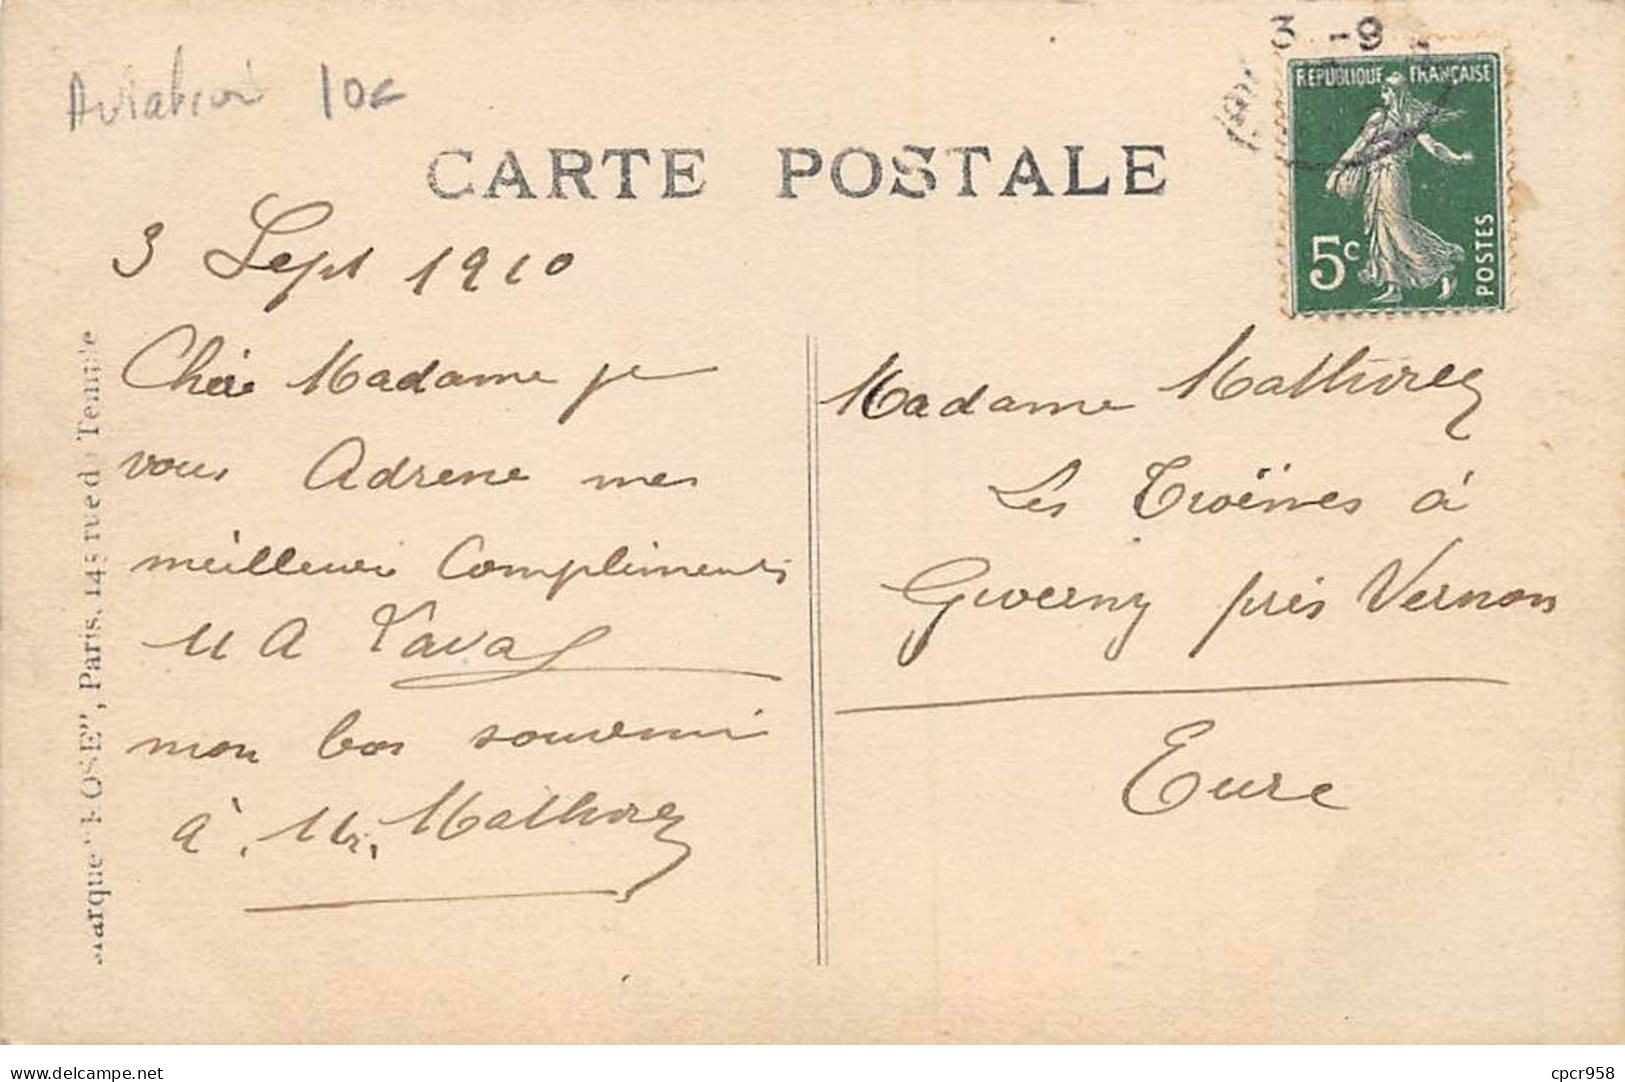 Aviation 10€
3 -9
REPUBLIQUE FRANÇAISE
5c
POSTES
CARTE POSTALE
3 Sept 1910
Chère Madame je
vous Adresse mes
meilleurs Compliments
A
mon bon souvenir
à Mr. Mathorez
Madame Mathorez
Les Troënes à
Giverny près Vernon
Eure
Marque "ROSE", Paris, 145 rue du Temple
delcampe.net
cpcr958